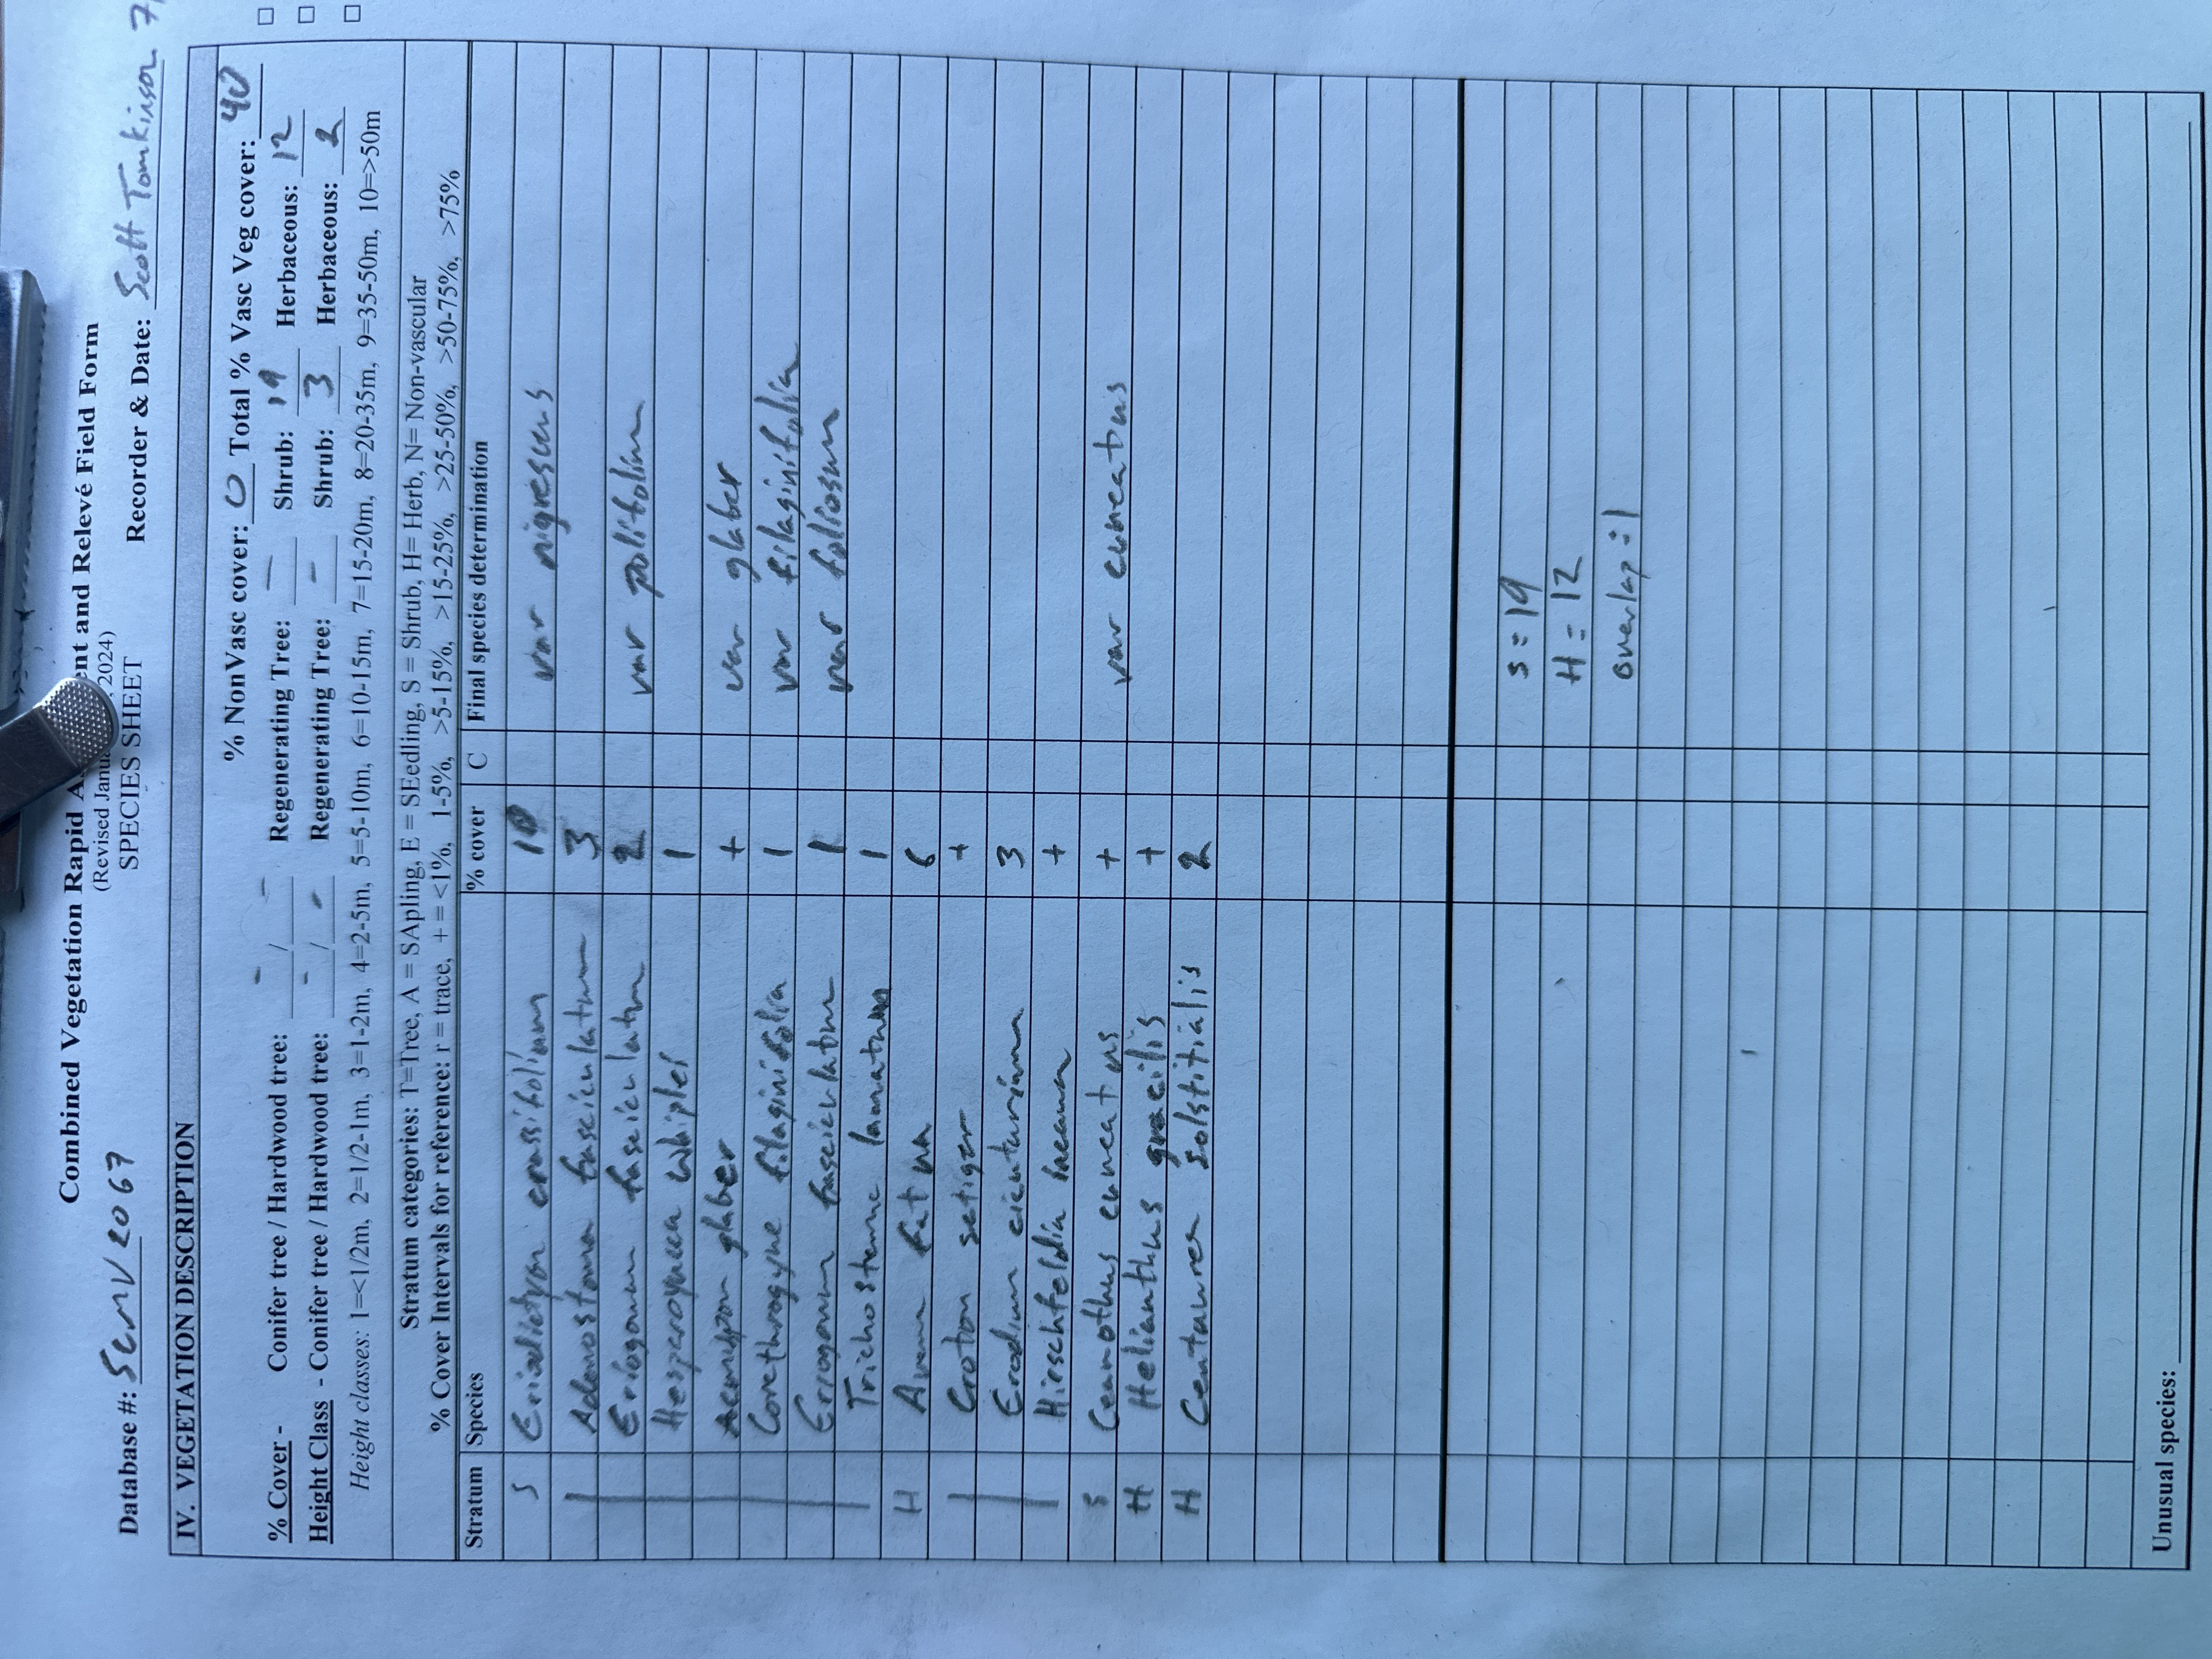 Combined Vegetation Rapid A ent and Relevé Field Form
(Revised Janua , 2024)
SPECIES SHEET
Database #: SCMV2067 Recorder & Date: Scott Tomkinson 7/
IV. VEGETATION DESCRIPTION
% NonVasc cover: 0 Total % Vasc Veg cover: 40
% Cover - Conifer tree / Hardwood tree: - / - Regenerating Tree: - Shrub: 19 Herbaceous: 12
Height Class - Conifer tree / Hardwood tree: - / - Regenerating Tree: - Shrub: 3 Herbaceous: 2
Height classes: 1=<1/2m, 2=1/2-1m, 3=1-2m, 4=2-5m, 5=5-10m, 6=10-15m, 7=15-20m, 8=20-35m, 9=35-50m, 10=>50m
Stratum categories: T=Tree, A = SApling, E = SEedling, S = Shrub, H= Herb, N= Non-vascular
% Cover Intervals for reference: r = trace, + = <1%, 1-5%, >5-15%, >15-25%, >25-50%, >50-75%, >75%
Stratum Species % cover C Final species determination
S Eriodictyon crassifolium 10 var nigrescens
Adenostoma fasciculatum 3
Eriogonum fasciculatum 2 var polifolium
Hesperoyucca whiplei 1
Acmispon glaber + var glaber
Corethrogyne filaginifolia 1 var filaginifolia
Eriogonum fasciculatum 1 var foliosum
Trichostema lanatum 1
H Avena fatua 6
Croton setiger +
Erodium cicutarium 3
Hirschfeldia incana +
S Ceanothus cuneatus + var cuneatus
H Helianthus gracilis +
H Centaurea solstitialis 2
S = 19
H = 12
overlap = 1
Unusual species: